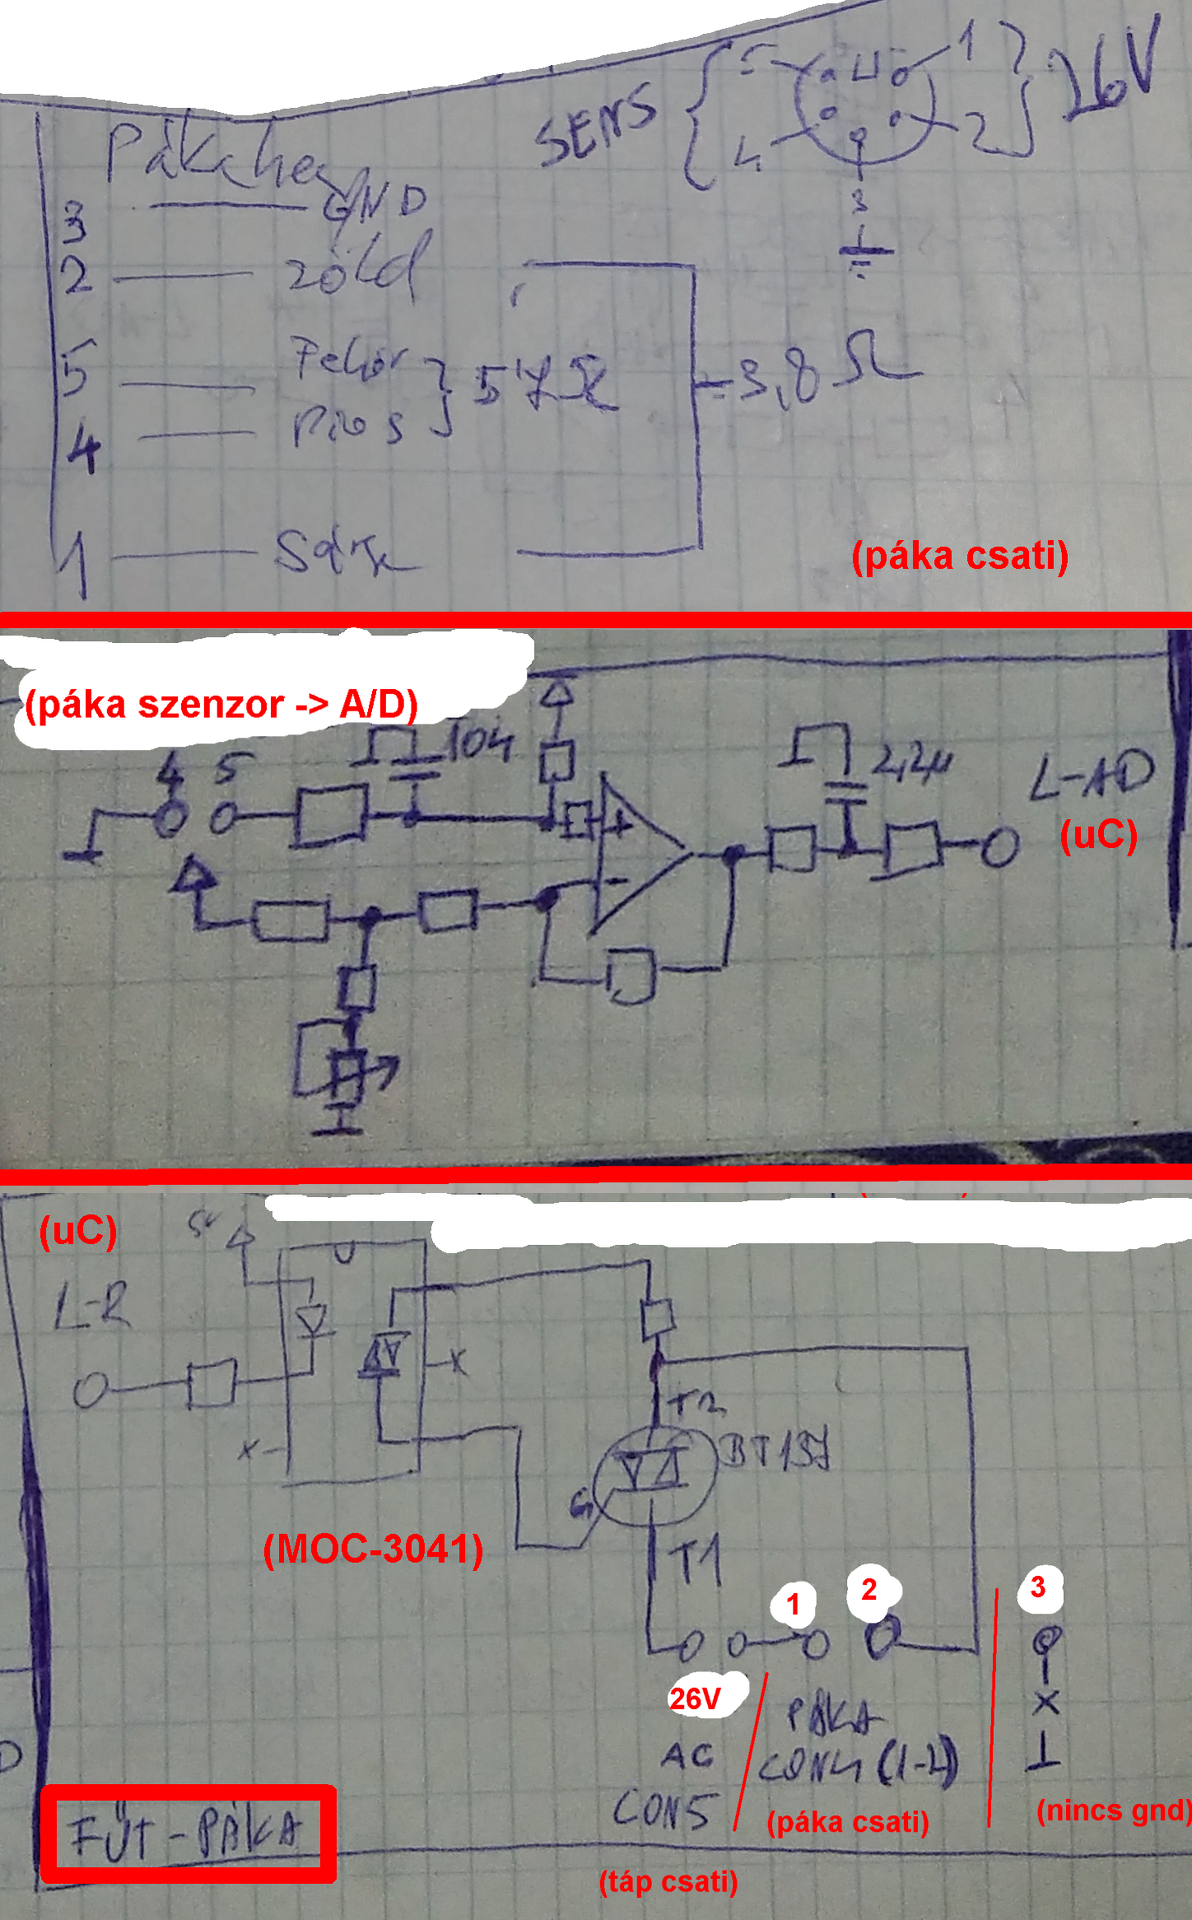 SENS
5
1
26V
4
2
3
3 GND
2 zöld
5 Fehér
57Ω
3,8Ω
4 Piros
1
(páka csati)
(páka szenzor -> A/D)
4 5
104
2,2µ
L-AD
(uC)
+
-
(uC)
5V
L-R
x
x
T2
BT137
G
(MOC-3041)
T1
1
2
3
26V
AC
CON5
PÁKA
CON4 (1-2)
x
(nincs gnd)
(páka csati)
FŰT-PÁKA
(táp csati)